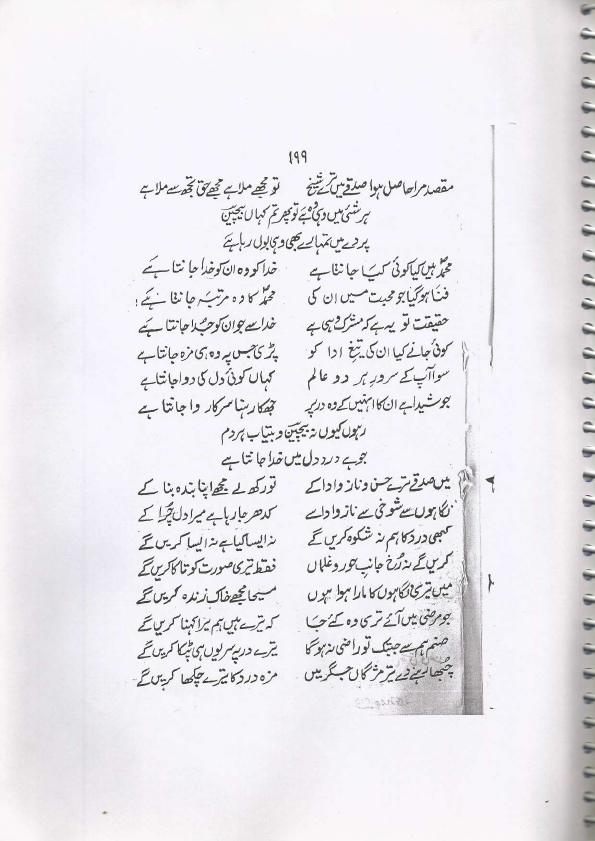 ۱۹۹
مقصد مرا حاصل ہوا صدقے میں ترے شیخ تو مجھے ملا ہے مجھے حق تجھ سے ملا ہے
ہر شئی میں وہی وہ ہے تو پھر تم کہاں بیچین
پردے میں تمہارے بھی وہی بول رہا ہے
محمدؐ ہیں کیا کوئی کیا جانتا ہے خدا کو وہ ان کو خدا جانتا ہے
فنا ہو گیا جو محبت میں ان کی محمدؐ کا وہ مرتبہ جانتا ہے
حقیقت تو یہ ہے کہ مشرک وہی ہے خدا سے جو ان کو جُدا جانتا ہے
کوئی جانے کیا ان کی تیغِ ادا کو پڑی جس پہ وہ ہی مزہ جانتا ہے
سوا آپ کے سرورِ ہر دو عالم کہاں کوئی دل کی دوا جانتا ہے
جو شیدا ہے ان کا انہیں کے وہ در پر جھکا رہنا سرکار وا جانتا ہے
رہوں کیوں نہ بیچین و بیتاب ہر دم
جو ہے دردِ دل میں خدا جانتا ہے
میں صدقے ترے حسن و ناز و ادا کے تو رکھ لے مجھے اپنا بندہ بنا کے
نگاہوں سے شوخی سے ناز و ادا سے کدھر جا رہا ہے میرا دل چُرا کے
کبھی درد کا ہم نہ شکوہ کریں گے نہ ایسا کیا ہے نہ ایسا کریں گے
کریں گے نہ رُخ جانبِ حور و غلماں فقط تیری صورت کو تاکا کریں گے
میں تیری نگاہوں کا مارا ہوا ہوں مسیحا مجھے خاک زندہ کریں گے
جو مرضی میں آئے تری وہ کئے جا کہ تیرے ہیں ہم تیرا کہنا کریں گے
صنم ہم سے جبتک تو راضی نہ ہوگا ترے در پہ سر یوں ہی پٹکا کریں گے
چُبھا رہنے دے تیرِ مژگاں جگر میں مزہ درد کا تیرے چکھا کریں گے